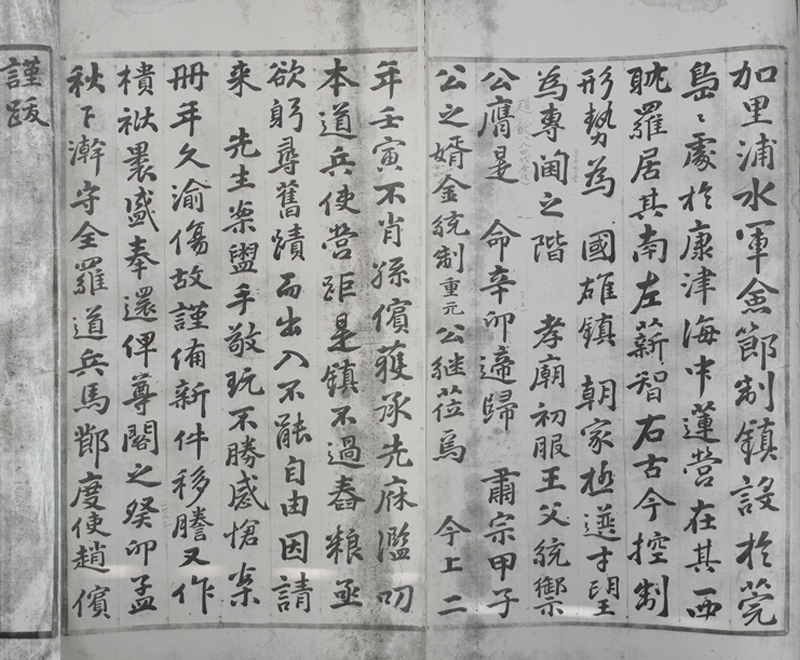 加里浦水軍僉節制鎮設於莞
島〻處於康津海中蓮營在其西
眈羅居其南左薪智右古今控制
形勢為 國雄鎮 朝家極選才望
為專閫之階 孝廟初服王父統禦
公膺是 命辛卯遞歸 肅宗甲子
公之婿金統制重元公継莅焉 今上二
年壬寅不肖孫儐獲承先庥濫叨
本道兵使營距是鎮不過舂粮亟
欲躬尋舊蹟而出入不能自由因請
来 先生案盥手敬玩不勝感愴案
冊年久渝傷故謹備新件移謄又作
樻袱褁盛奉還俾尊閣之癸卯孟
秋下澣守全羅道兵馬節度使趙儐
謹跋